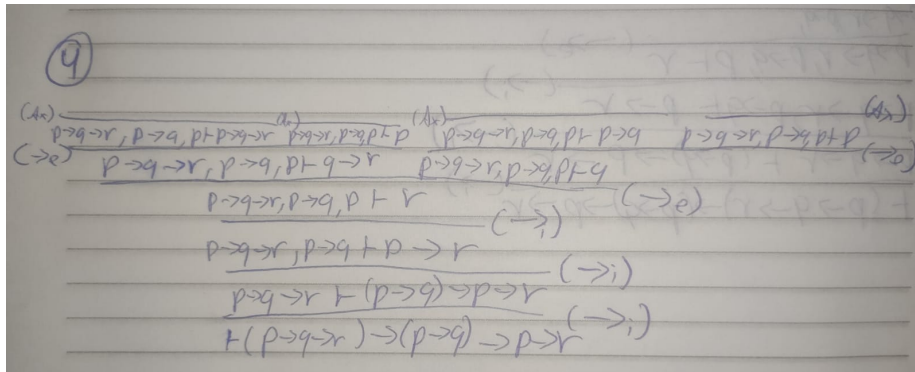 4
(Ax) (Ax) (Ax) (Ax)
p→q→r, p→q, p ⊢ p→q→r p→q→r, p→q, p ⊢ p p→q→r, p→q, p ⊢ p→q p→q→r, p→q, p ⊢ p
(→e) p→q→r, p→q, p ⊢ q→r p→q→r, p→q, p ⊢ q (→e)
p→q→r, p→q, p ⊢ r (→e)
p→q→r, p→q ⊢ p→r (→i)
p→q→r ⊢ (p→q)→p→r (→i)
⊢ (p→q→r)→(p→q)→p→r (→i)